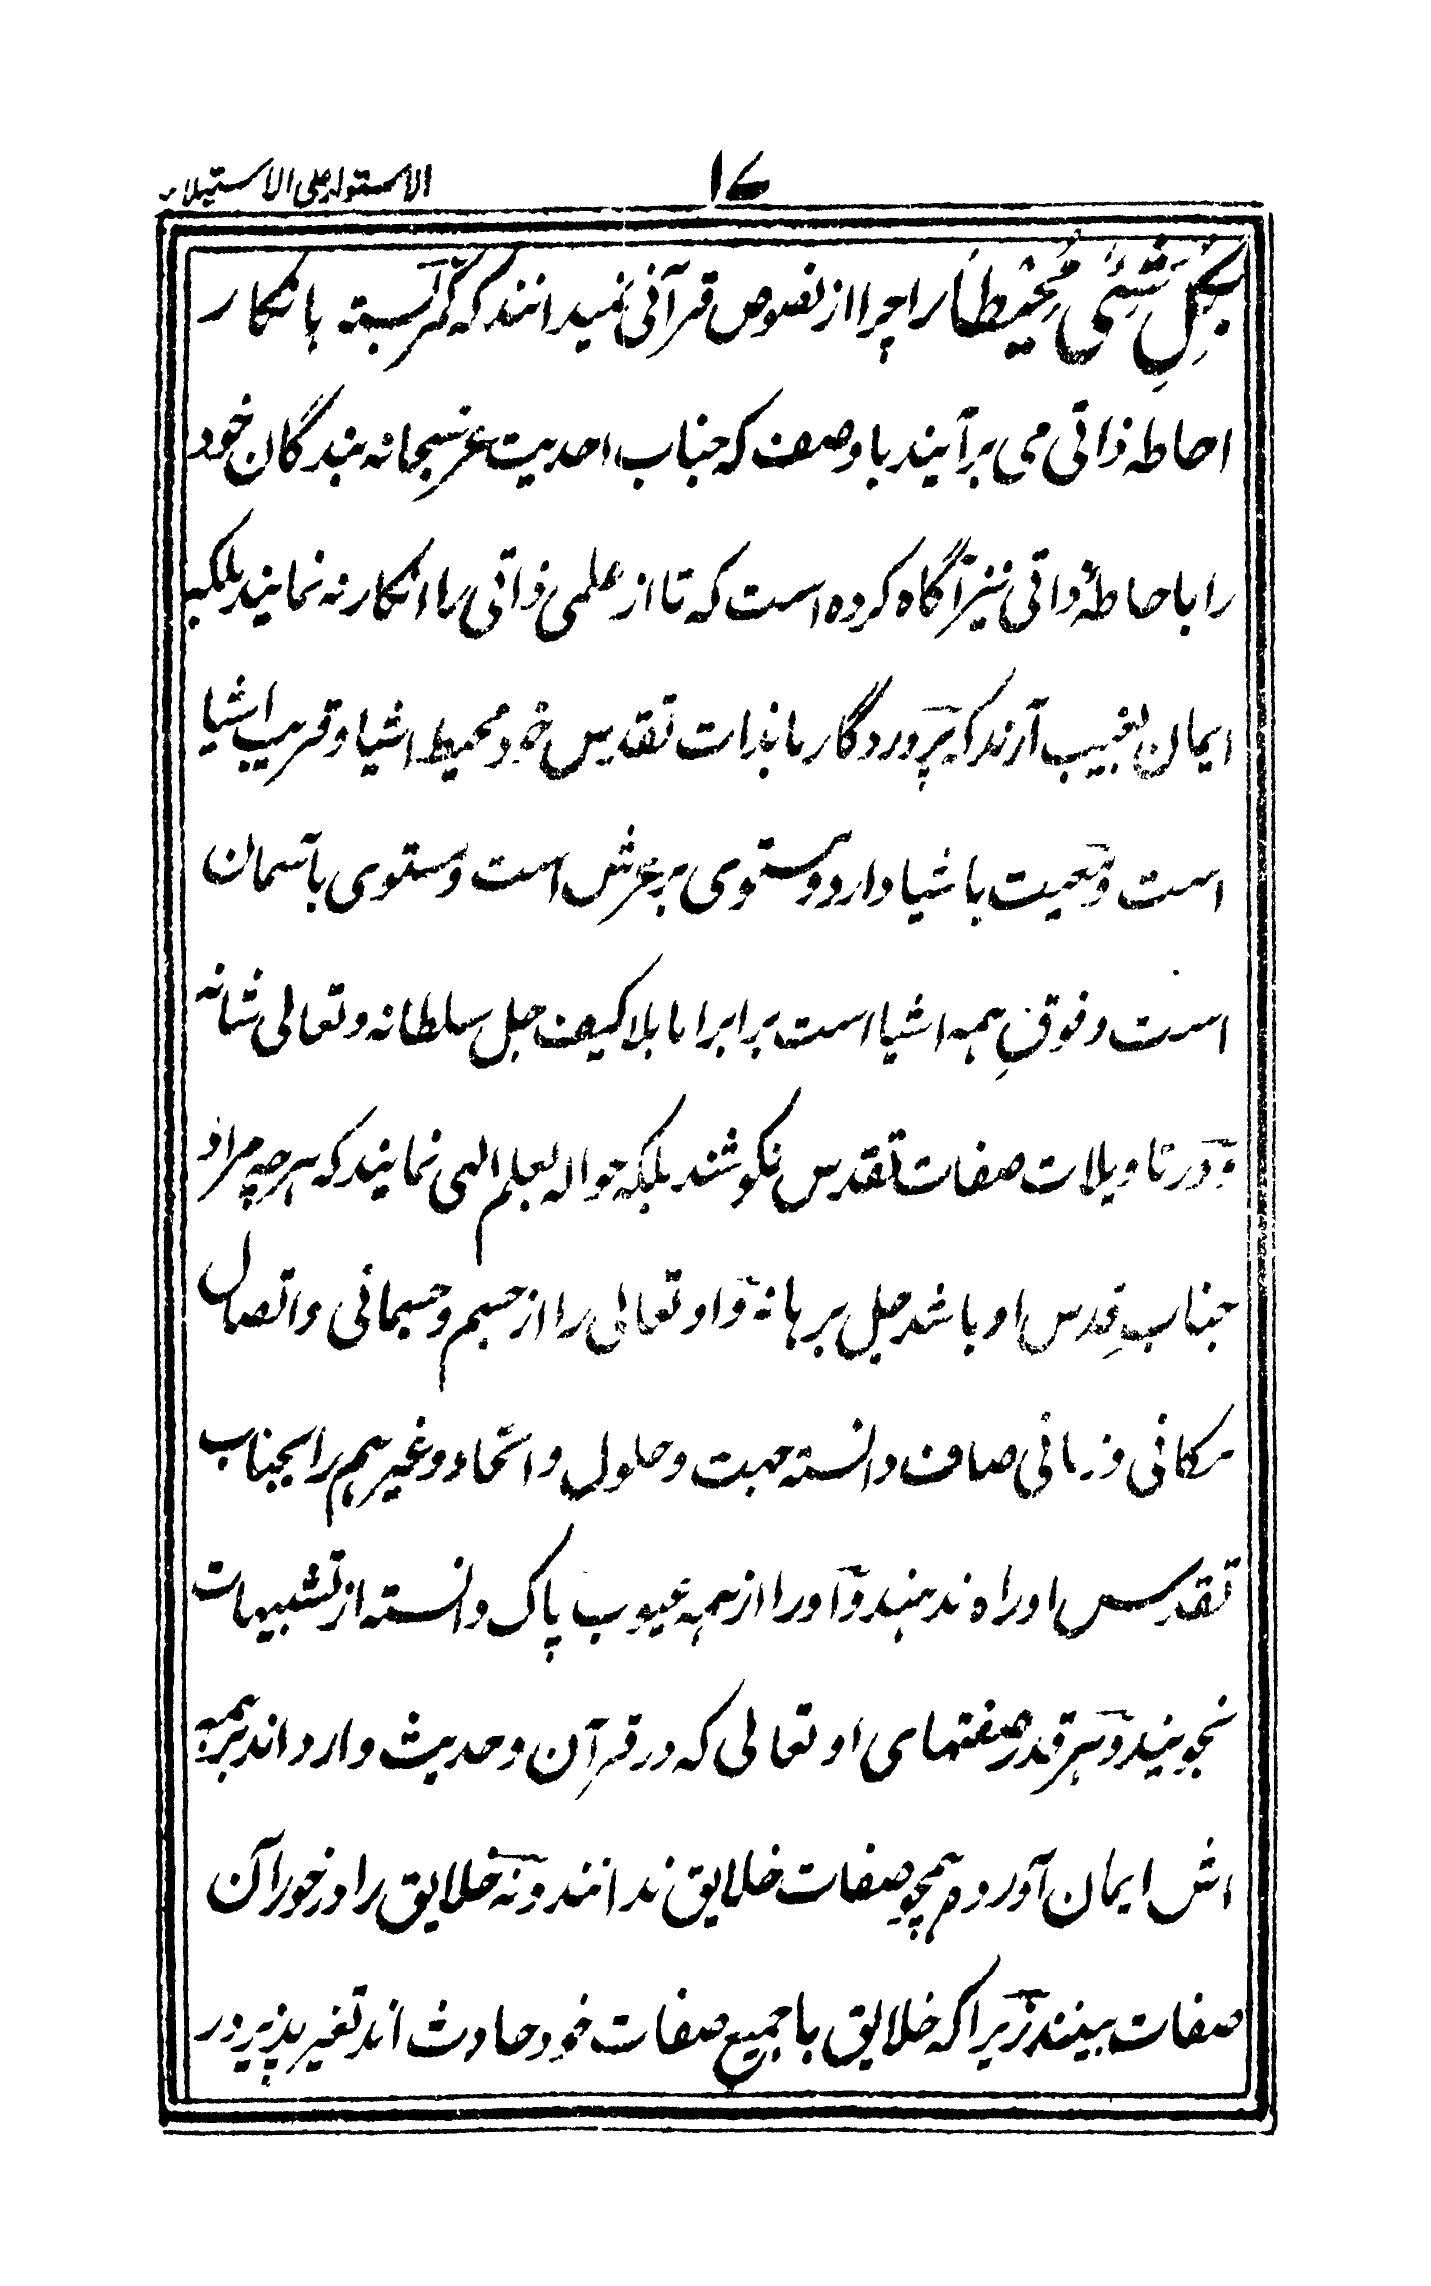 ۱۷ الاستواء علی الاستیلاء
بِکُلِّ شَیْئٍ مُّحِیْطًا را چرا از نصوص قرآنی نمیدانند که کمر بسته بانکار
احاطه ذاتی می برآیند با وصف که جناب احدیت عز سبحانه بندگان خود
را باحاطهٔ ذاتی نیز آگاه کرده است که تا از علمی ذاتی ما انکار نه نمایند بلکه
ایمان بغیب آرند که پروردگار ما بذات تقدس خود محیط اشیا و قریب اشیا
است و معیت باشیا دارد و مستوی بر عرش است و مستوی بآسمان
است و فوقِ همه اشیا است برابر اما بلا کیف جل سلطانه و تعالی شانه
و در تاویلات صفات تقدس نکوشند بلکه حواله بعلم الهی نمایند که هرچه مراد
جنابِ قدس او باشد جل برهانه و او تعالی را از جسم و جسمانی و اتصال
مکانی و زمانی صاف دانسته جهت و حلول و اتحاد و غیر هم را بجناب
تقدس او راه ندهند و او را از همه عیوب پاک دانسته از تشبیهات
نجویند و هر قدر صفتهای او تعالی که در قرآن و حدیث وارد اند بر همه
اش ایمان آورده همچو صفات خلایق ندانند و نه خلایق را در خور آن
صفات بینند زیرا که خلایق با جمیع صفات خود حادث اند تغیر پذیر و در